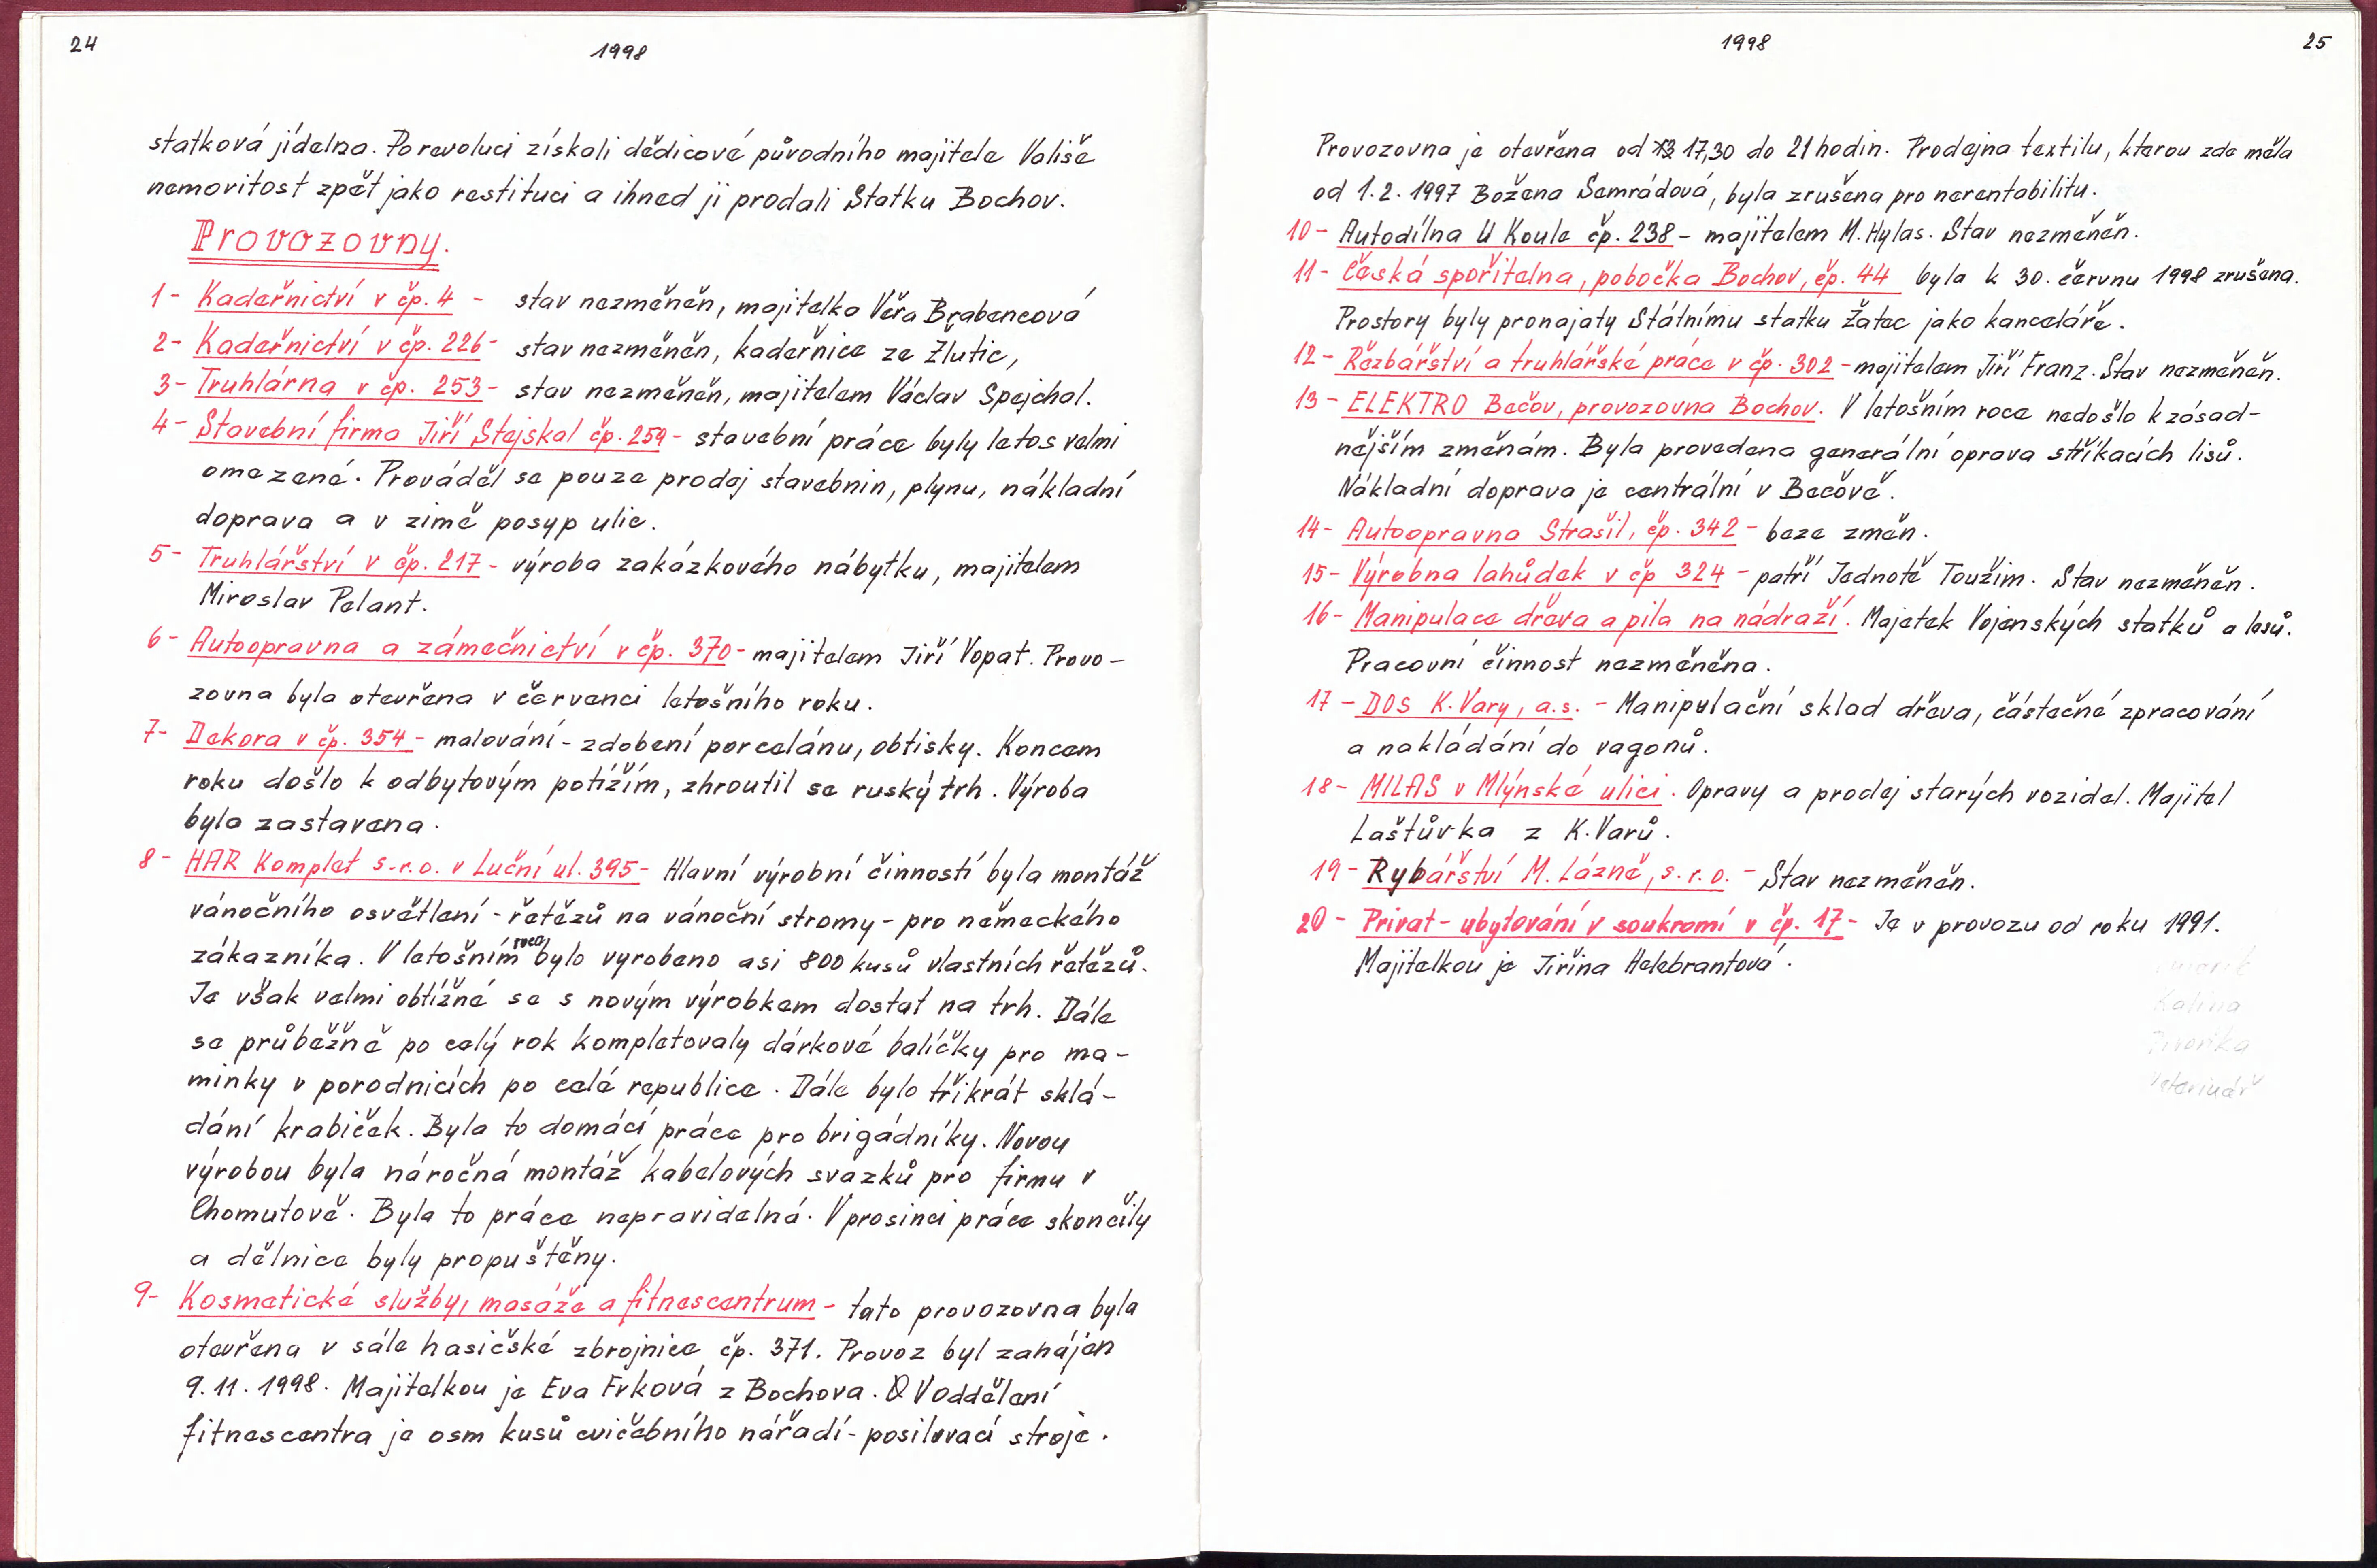 24
1998
statková jídelna. Po revoluci získali dědicové původního majitele Vališe
nemovitost zpět jako restituci a ihned ji prodali Statku Bochov.
Provozovny.
1- Kadeřnictví v čp. 4 - stav nezměněn, majitelka Věra Brabencová
2- Kadeřnictví v čp. 226- stav nezměněn, kadeřnice ze Žlutic,
3- Truhlárna v čp. 253- stav nezměněn, majitelem Václav Spejchal.
4- Stavební firma Jiří Stejskal čp. 259- stavební práce byly letos velmi
omezené. Prováděl se pouze prodej stavebnin, plynu, nákladní
doprava a v zimě posyp ulic.
5- Truhlářství v čp. 217- výroba zakázkového nábytku, majitelem
Miroslav Pelant.
6- Autoopravna a zámečnictví v čp. 370- majitelem Jiří Vopat. Provo-
zovna byla otevřena v červenci letošního roku.
7- Dekora v čp. 354- malování- zdobení porcelánu, obtisky. Koncem
roku došlo k odbytovým potížím, zhroutil se ruský trh. Výroba
byla zastavena.
8- HAR Komplet s.r.o. v Luční ul. 395- Hlavní výrobní činností byla montáž
vánočního osvětlení- řetězů na vánoční stromy- pro německého
zákazníka. V letošním roce bylo vyrobeno asi 800 kusů vlastních řetězů.
Je však velmi obtížné se s novým výrobkem dostat na trh. Dále
se průběžně po celý rok kompletovaly dárkové balíčky pro ma-
minky v porodnicích po celé republice. Dále bylo třikrát sklá-
dání krabiček. Byla to domácí práce pro brigádníky. Novou
výrobou byla náročná montáž kabelových svazků pro firmu v
Chomutově. Byla to práce nepravidelná. V prosinci práce skončily
a dělnice byly propuštěny.
9- Kosmetické služby, masáže a fitnescentrum- tato provozovna byla
otevřena v sále hasičské zbrojnice čp. 371. Provoz byl zahájen
9.11.1998. Majitelkou je Eva Frková z Bochova. V oddělení
fitnescentra je osm kusů cvičebního nářadí- posilovací stroje.
1998
25
Provozovna je otevřena od 17,30 do 21 hodin. Prodejna textilu, kterou zde měla
od 1.2. 1997 Božena Šemrádová, byla zrušena pro nerentabilitu.
10- Autodílna U Koule čp. 238- majitelem M. Hylas. Stav nezměněn.
11- Česká spořitelna, pobočka Bochov, čp. 44 byla k 30. červnu 1998 zrušena.
Prostory byly pronajaty Státnímu statku Žatec jako kanceláře.
12- Řezbářství a truhlářské práce v čp. 302- majitelem Jiří Franz. Stav nezměněn.
13- ELEKTRO Bečov, provozovna Bochov. V letošním roce nedošlo k zásad-
nějším změnám. Byla provedena generální oprava stříkacích lisů.
Nákladní doprava je centrální v Bečově.
14- Autoopravna Strašil, čp. 342- beze změn.
15- Výrobna lahůdek v čp 324- patří Jednotě Toužim. Stav nezměněn.
16- Manipulace dřeva a pila na nádraží. Majetek Vojenských statků a lesů.
Pracovní činnost nezměněna.
17- DOS K. Vary, a.s. - Manipulační sklad dřeva, částečné zpracování
a nakládání do vagonů.
18- MILAS v Mlýnské ulici. Opravy a prodej starých vozidel. Majitel
Laštůvka z K. Varů.
19- Rybářství M. Lázně, s.r.o. - Stav nezměněn.
20- Privat- ubytování v soukromí v čp. 17- Je v provozu od roku 1991.
Majitelkou je Jiřina Helebrantová.
Kalina
Veterinář